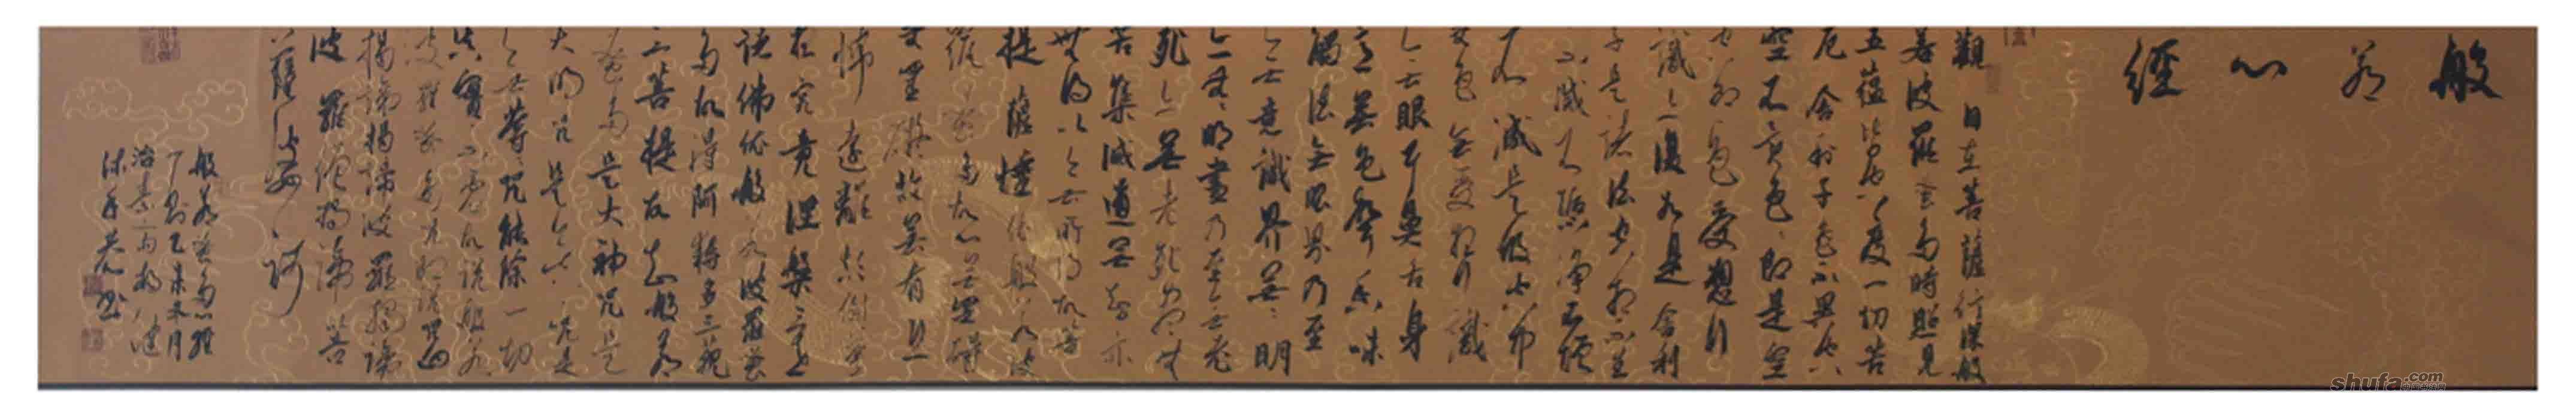 般若心經
觀自在菩薩行深般
若波羅蜜多時照見
五蘊皆空度一切苦
厄舍利子色不異空
空不異色色即是空
空即是色受想行
識亦復如是舍利
子是諸法空相不生
不滅不垢不淨不增
不減是故空中
無色無受想行識
無眼耳鼻舌身
意無色聲香味
觸法無眼界乃至
無意識界無無明
亦無無明盡乃至無老
死亦無老死盡無
苦集滅道無智亦
無得以無所得故菩
提薩埵依般若波
羅蜜多故心無罣礙
無罣礙故無有恐
怖遠離顛倒夢
想究竟涅槃三世
諸佛依般若波羅蜜
多故得阿耨多三藐
三菩提故知般若
蜜多是大神咒是
大明咒是無上咒是
無等等咒能除一切
真實不虛故說般若
波羅蜜多咒即說咒曰
揭諦揭諦波羅揭諦
波羅僧揭諦菩
薩婆訶
般若蜜多心經
乙未
沐手 書
shufa.com